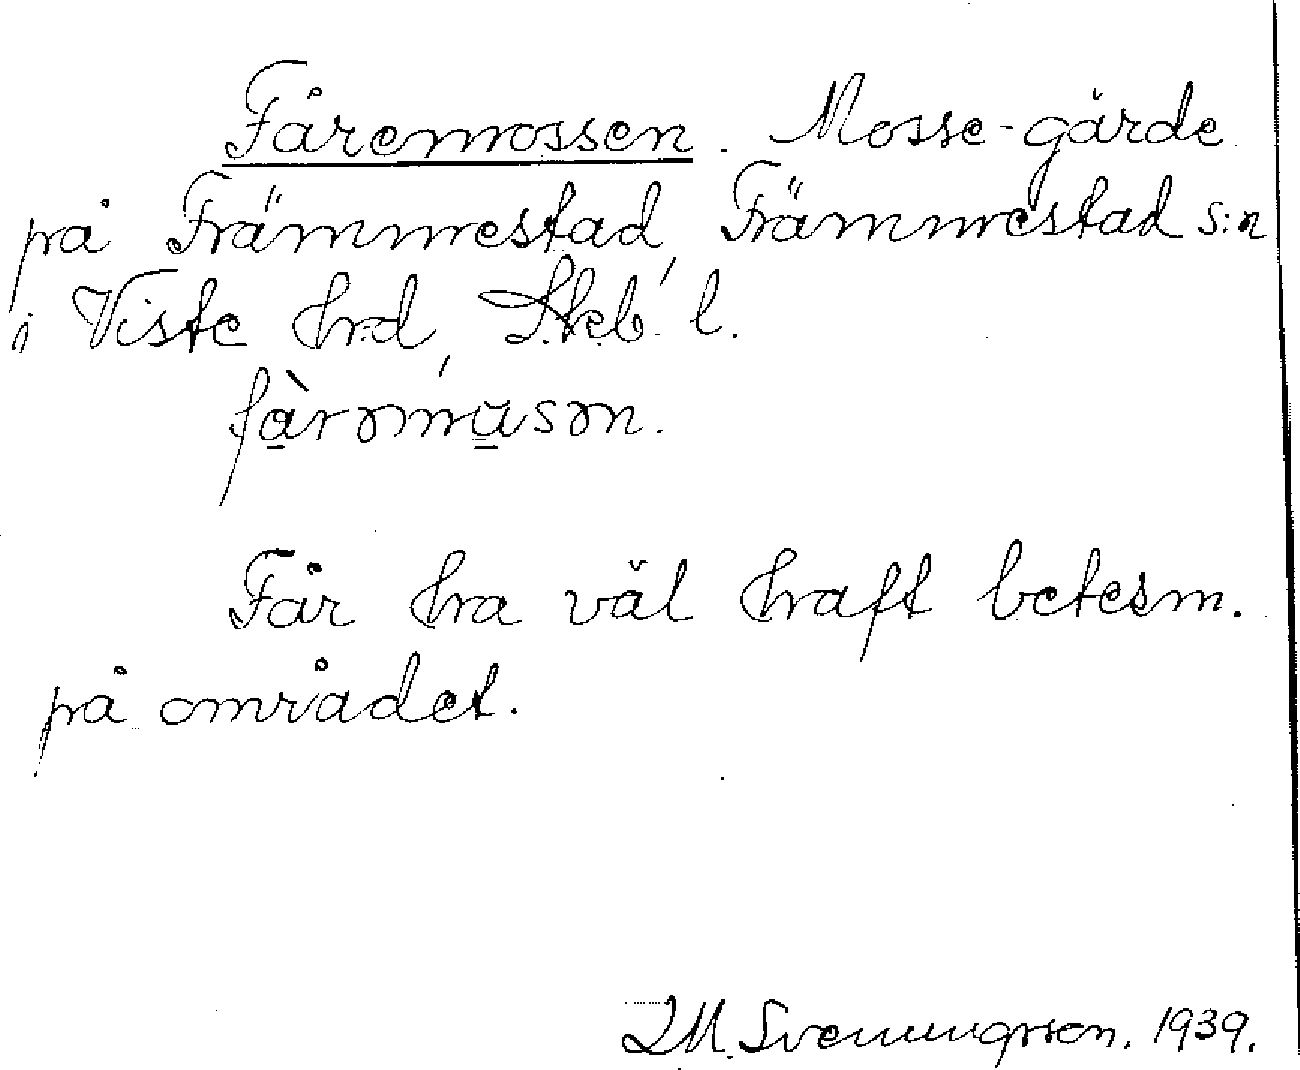 Fåremossen. Mosse-gärde
på Främmestad, Främmestad s:n
i Viste hrd, Skb. l.
fàrəmùsən.
Får ha väl haft betesm.
på området.
Svenungsson. 1939.